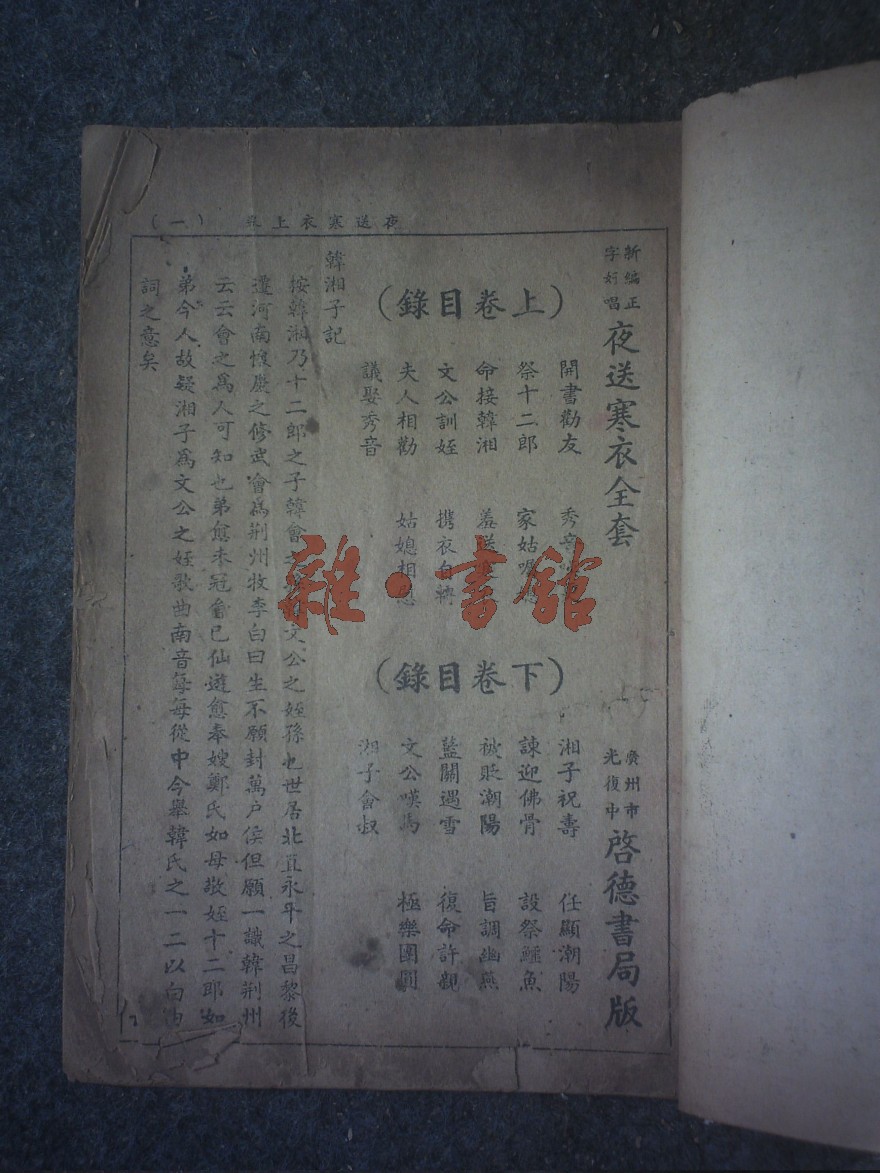 夜送寒衣上（一）
新編正字好唱
夜送寒衣全套
廣州市光復中
啓德書局版
（上卷目錄）
開書勸友
祭十二郎
命接韓湘
文公訓姪
夫人相勸
議娶秀音
秀
家姑
羞送寒
携衣自轉
姑媳相思
（下卷目錄）
湘子祝壽
諫迎佛骨
被貶潮陽
藍關遇雪
文公嘆馬
湘子會叔
任顯潮陽
設祭鱷魚
旨調幽燕
復命許親
極樂團圓
韓湘子記
按韓湘乃十二郎之子韓會之文公之姪孫也世居北直永平之昌黎後
遷河南懷慶之修武會為荆州牧李白曰生不願封萬户侯但願一識韓荆州
云云會之為人可知也弟愈未冠會已仙遊愈奉嫂鄭氏如母敬姪十二郎如
弟今人故疑湘子為文公之姪歌曲南音每每從中今舉韓氏之一二以白曲
詞之意矣
雜·書館